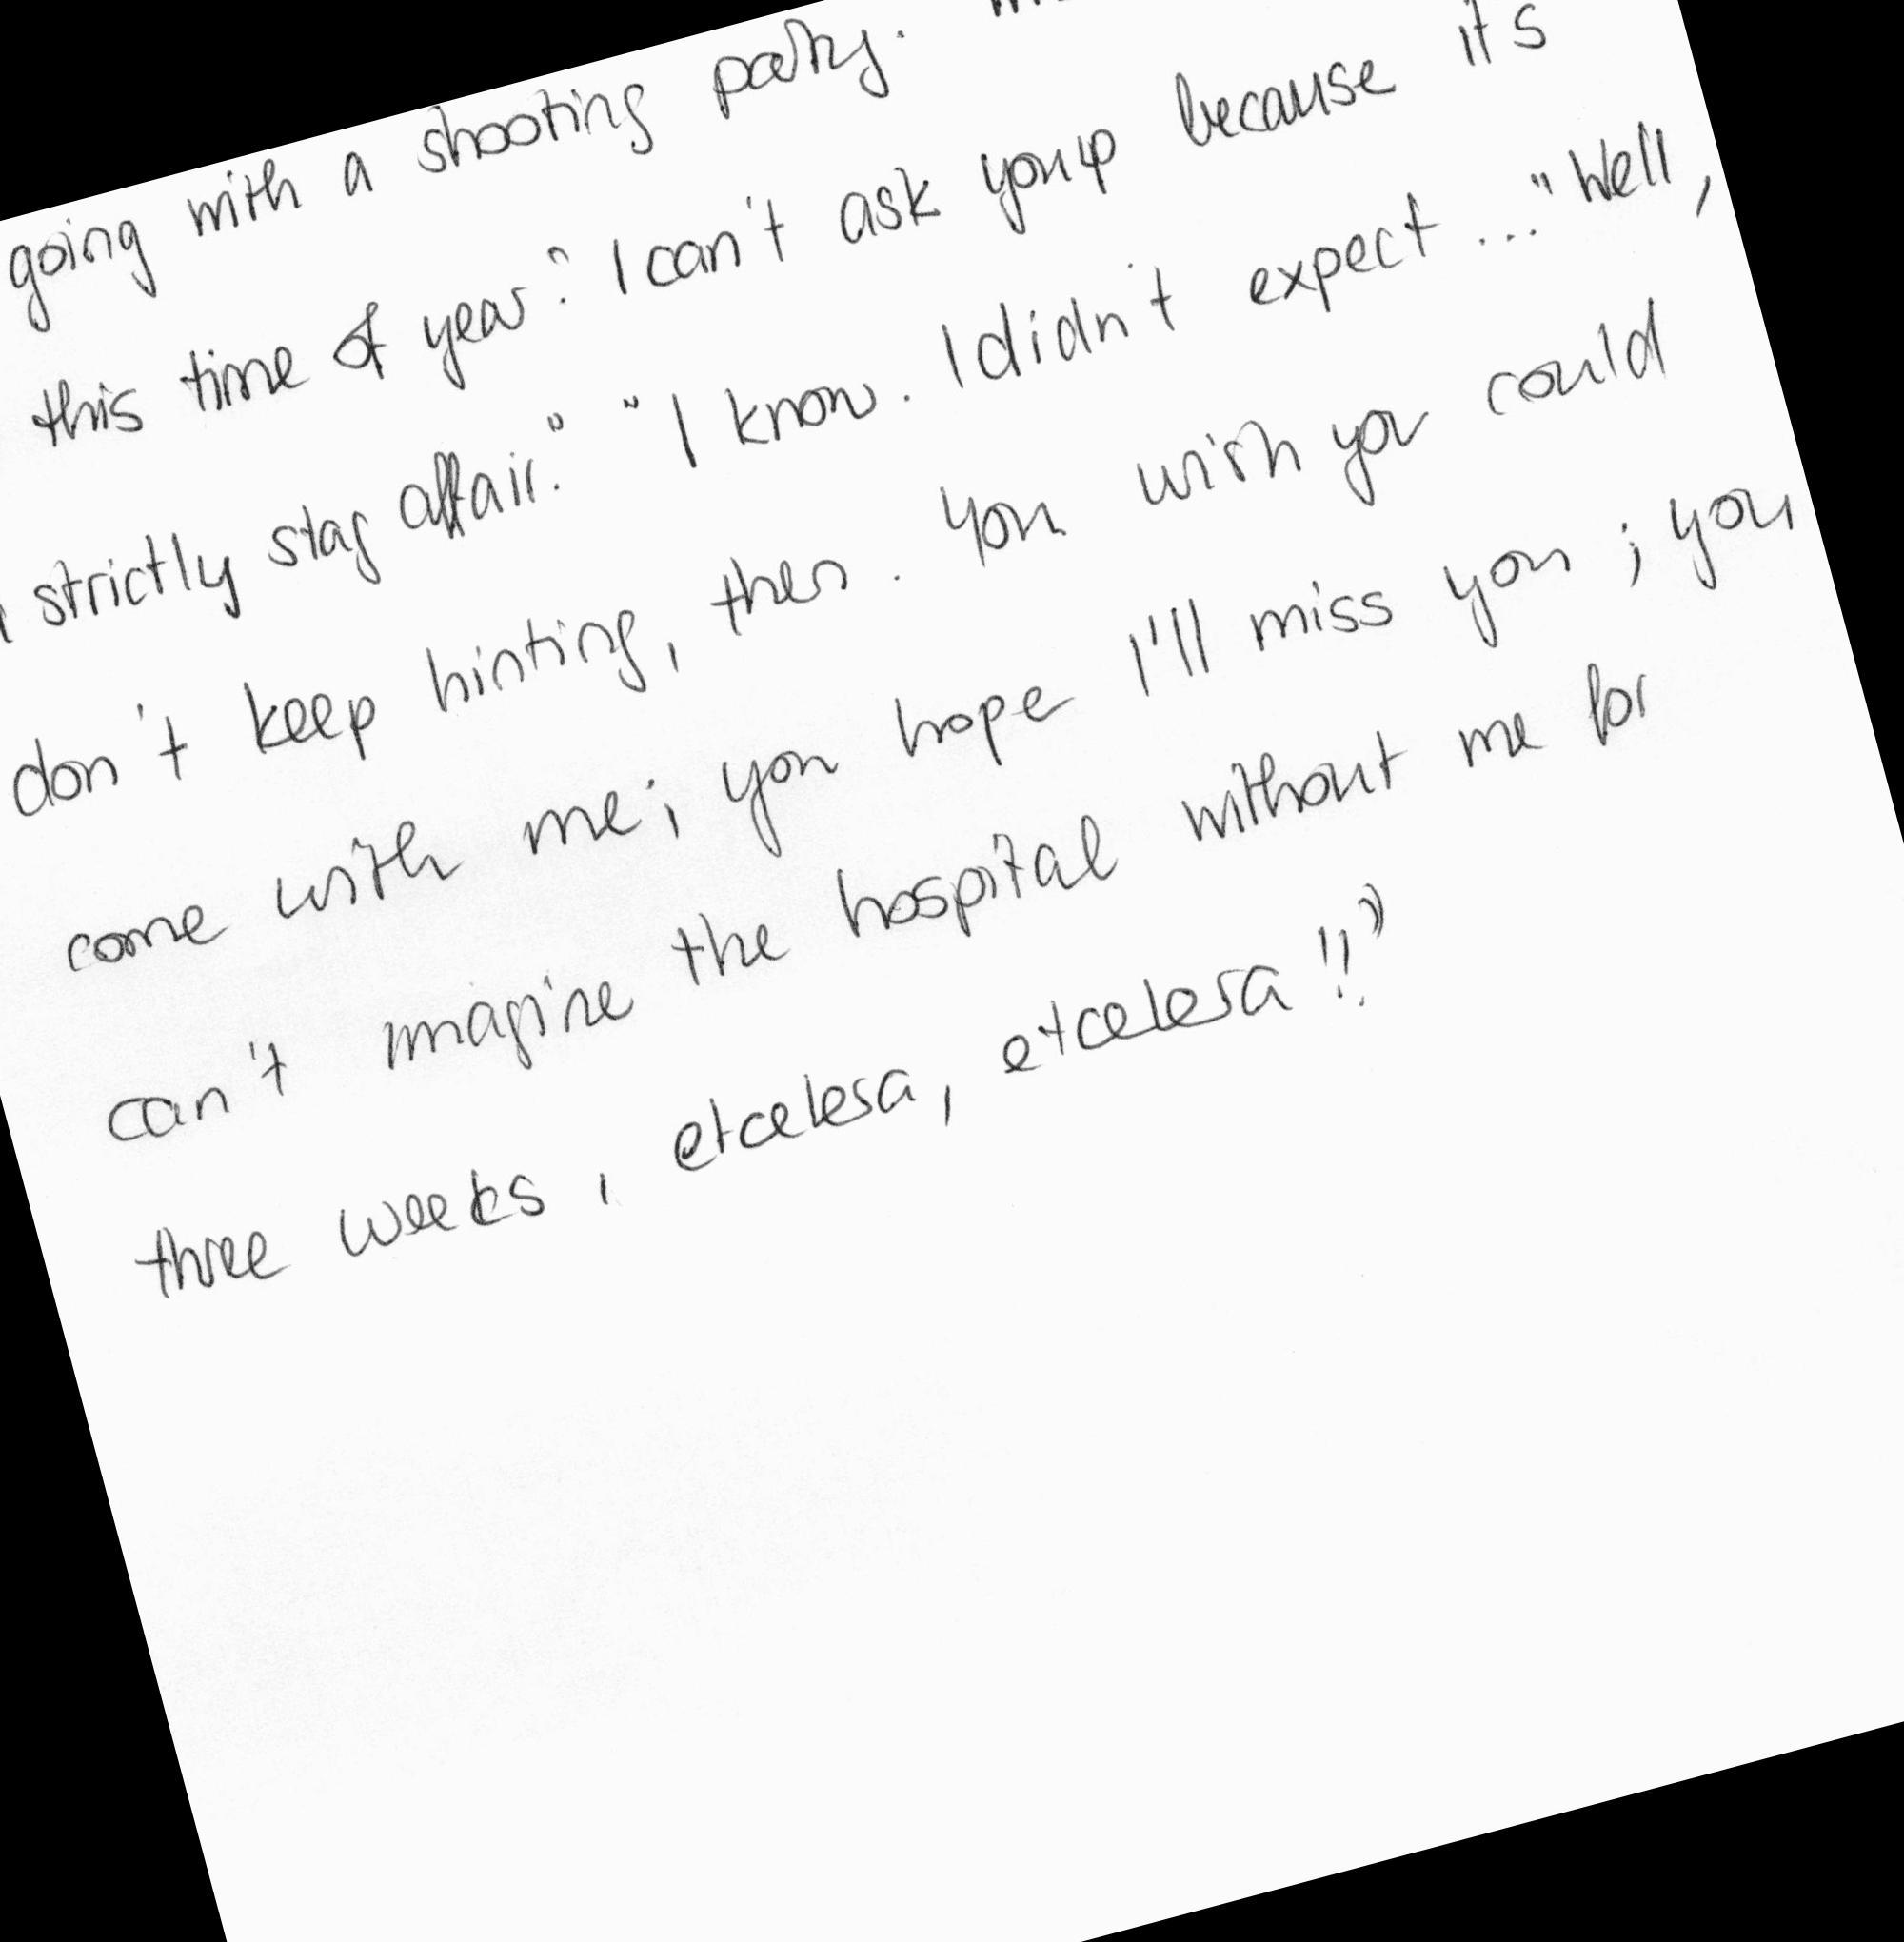 going with a shooting party.
this time of year." I can't ask you up because it's
strictly stag affair." "I know. I didn't expect ..." "Well,
don't keep hinting, then. You wish you could
come with me; you hope I'll miss you; you
can't imagine the hospital without me for
three weeks, etcetera, etcetera!!"